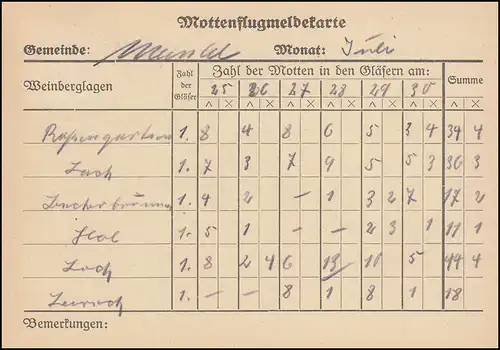 Mottenflugmeldekarte
Gemeinde: Monat: Juli
Weinberglagen Zahl der Gläser Zahl der Motten in den Gläsern am: Summe
25 26 27 28 29 30
^ X ^ X ^ X ^ X ^ X ^ X ^ X
Rosengarten 1. 8 4 8 6 5 3 4 34 4
1. 7 3 7 9 5 5 3 36 3
1. 4 2 – 1 3 2 7 17 2
1. 5 1 – – 2 3 1 11 1
Loch 1. 8 2 4 6 13 10 5 44 4
1. – – 8 1 8 1 18
Bemerkungen: